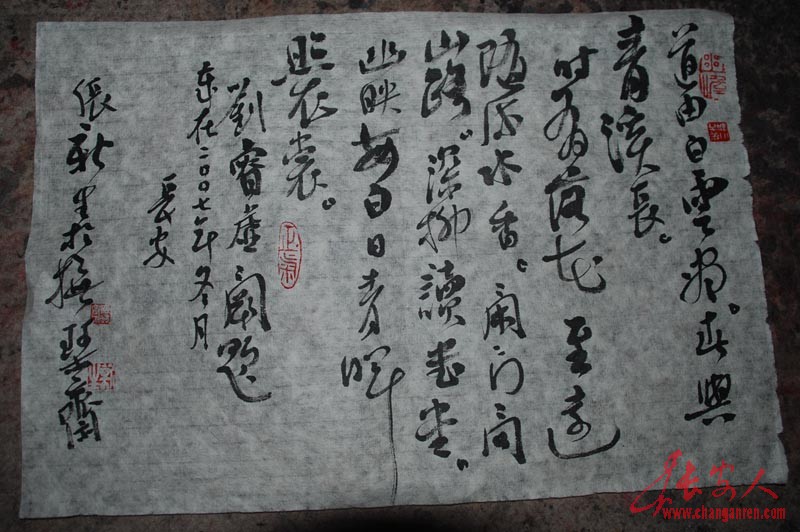 道由白雲尽。春與
青溪長。
時有落花至遠
随流水香。閑门向
山路。深柳讀书堂。
幽映每白日青暉
照衣裳。
劉睿虛闕题
在二〇〇七年冬月
長安
張新生於撫琴齋
长安人
www.changanren.com